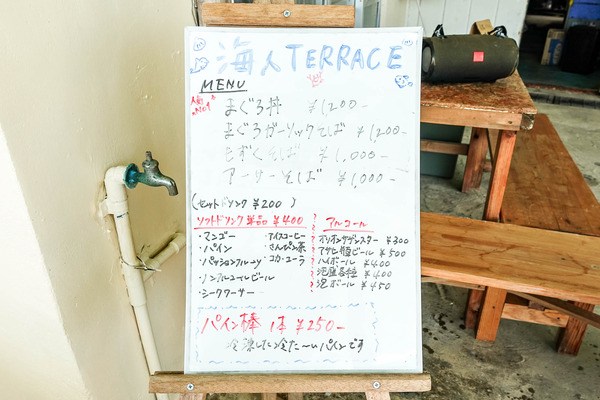 海人TERRACE
MENU
人気No.1
まぐろ丼 ¥1,200-
まぐろガーリックそば ¥1,200-
もずくそば ¥1,000-
アーサーそば ¥1,000-
(セットドリンク ¥200 )
ソフトドリンク 単品 ¥400
・マンゴー ・アイスコーヒー
・パイン ・さんぴん茶
・パッションフルーツ ・コカ・コーラ
・ノンアルコールビール
・シークワーサー
アルコール
オリオンザ・ドラフト ¥300
アサヒ瓶ビール ¥500
ハイボール ¥400
泡盛各種 ¥400
泡ボール ¥450
パイン棒 1本 ¥250-
冷凍した冷た〜いパインです